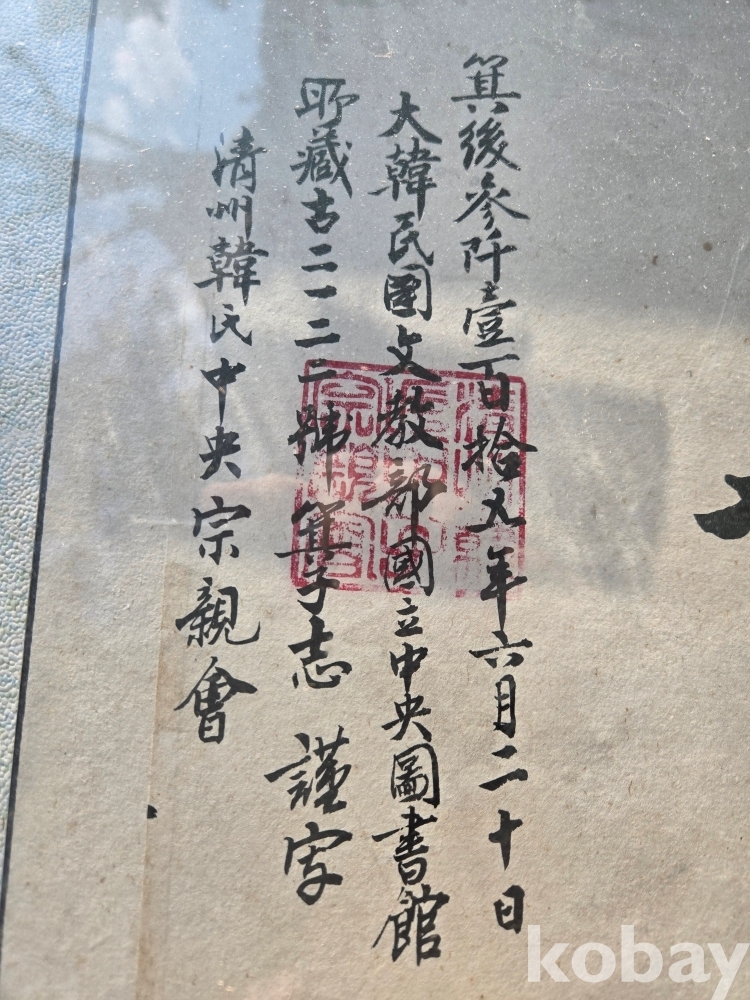 箕後參阡壹百拾五年六月二十日
大韓民國文敎部國立中央圖書館
所藏古二一二二號箕子志 謹字
淸州韓氏中央宗親會
kobay